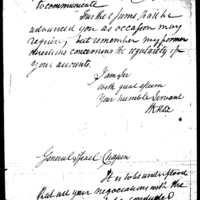 to communicate
Further sums shall be
advanced you as occasion may
require; but remember my former
directions concerning the regularity of
your accounts.
I am Sir
with great esteem
Your humble Servant
General Israel Chapin
It is to be understood
that all your negociations with the